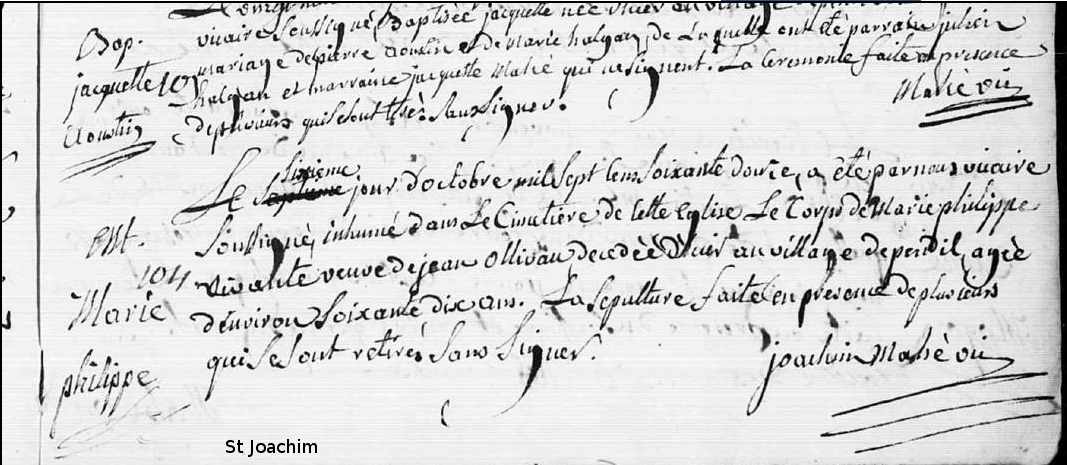 Bap.
jacquette
Aoustin
vicaire Soussigné, Baptisée jacquette née d'hier au village
mariage de pierre Aoustin et de Marie halgan, de Laquelle ont Eté parrain julien
halgan et marraine jacquette Mahé qui ne signent. La Ceremonie faite en presence
de plusieurs qui se sont retirés Sans Signer.
Mahé vic
Ent.
104
Marie
philippe
Sixieme
Le septieme jour d'octobre mil Sept Cens Soixante douze, a été par nous vicaire
Soussigné, inhumé dans Le Cimetière de Cette Eglise Le Corps de Marie philippe
vivante veuve de jean Ollivau decedée d'hier au village de pendil, agée
d'environ Soixante dix ans. La Sepulture faite en presence de plusieurs
qui Se Sont retirés Sans Signer.
joachim Mahé vic
St Joachim